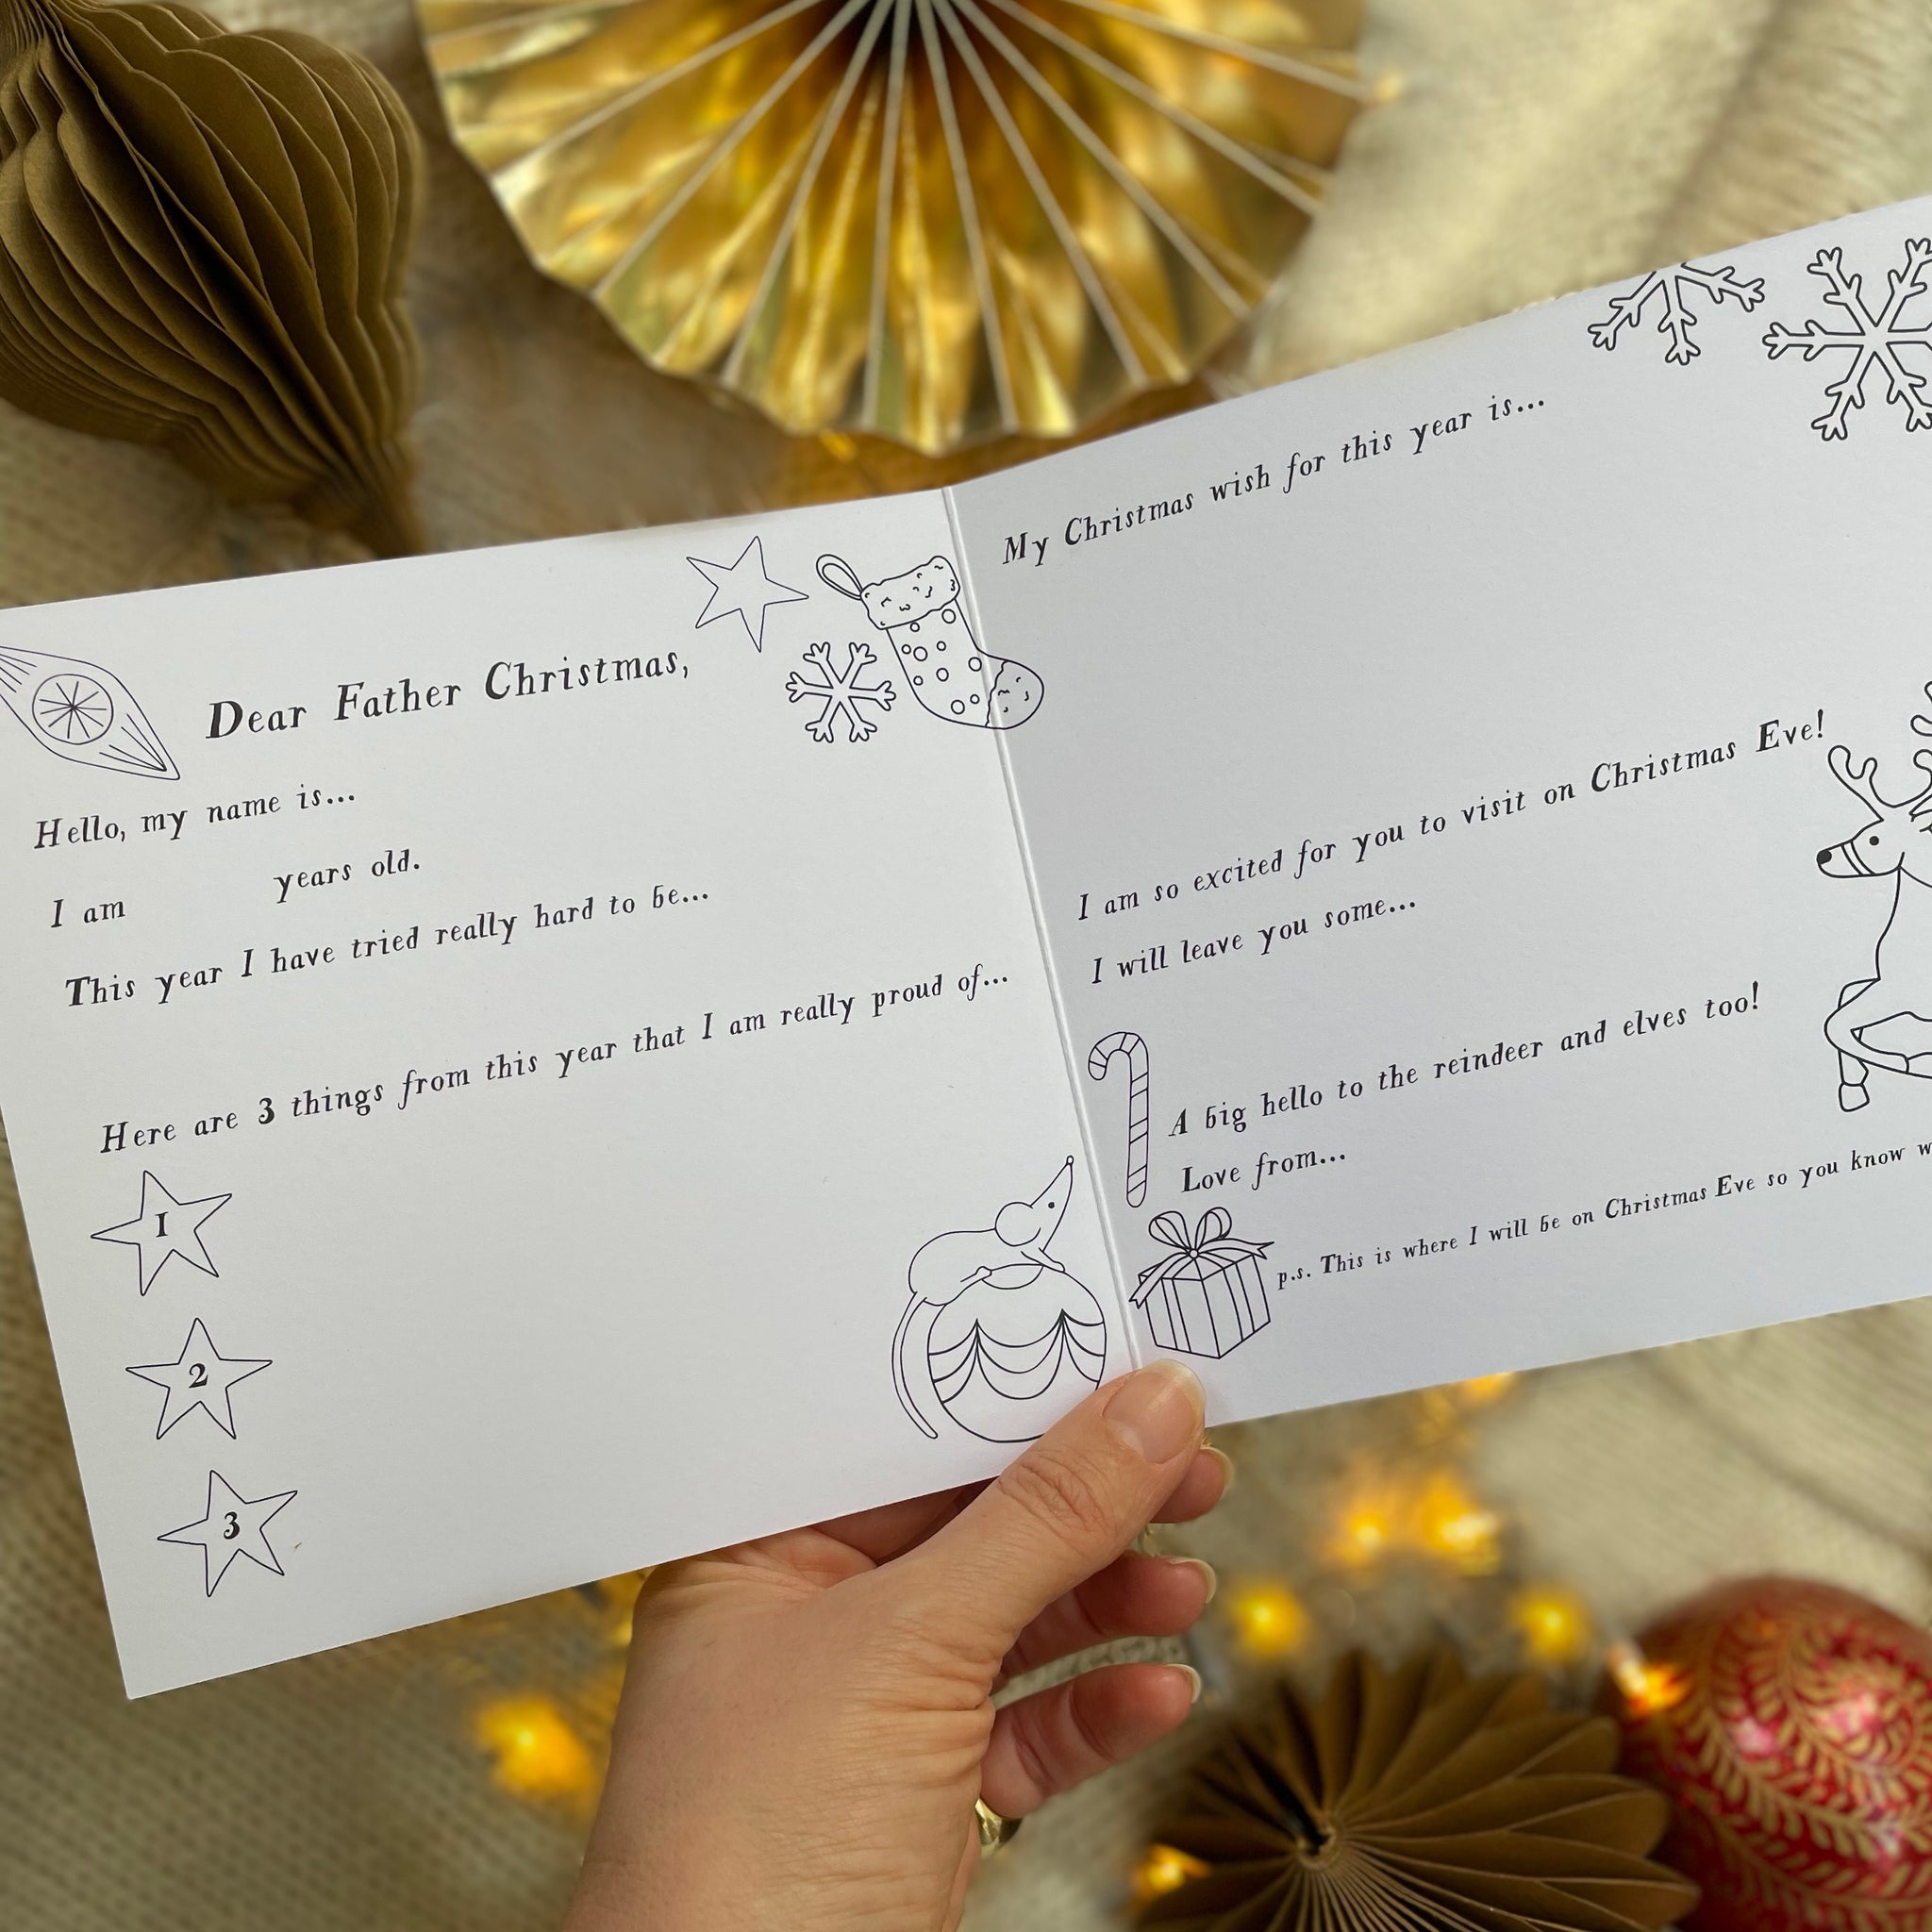 Dear Father Christmas,
Hello, my name is...
I am years old.
This year I have tried really hard to be...
Here are 3 things from this year that I am really proud of...
1
2
3
My Christmas wish for this year is...
I am so excited for you to visit on Christmas Eve!
I will leave you some...
A big hello to the reindeer and elves too!
Love from...
p.s. This is where I will be on Christmas Eve so you know